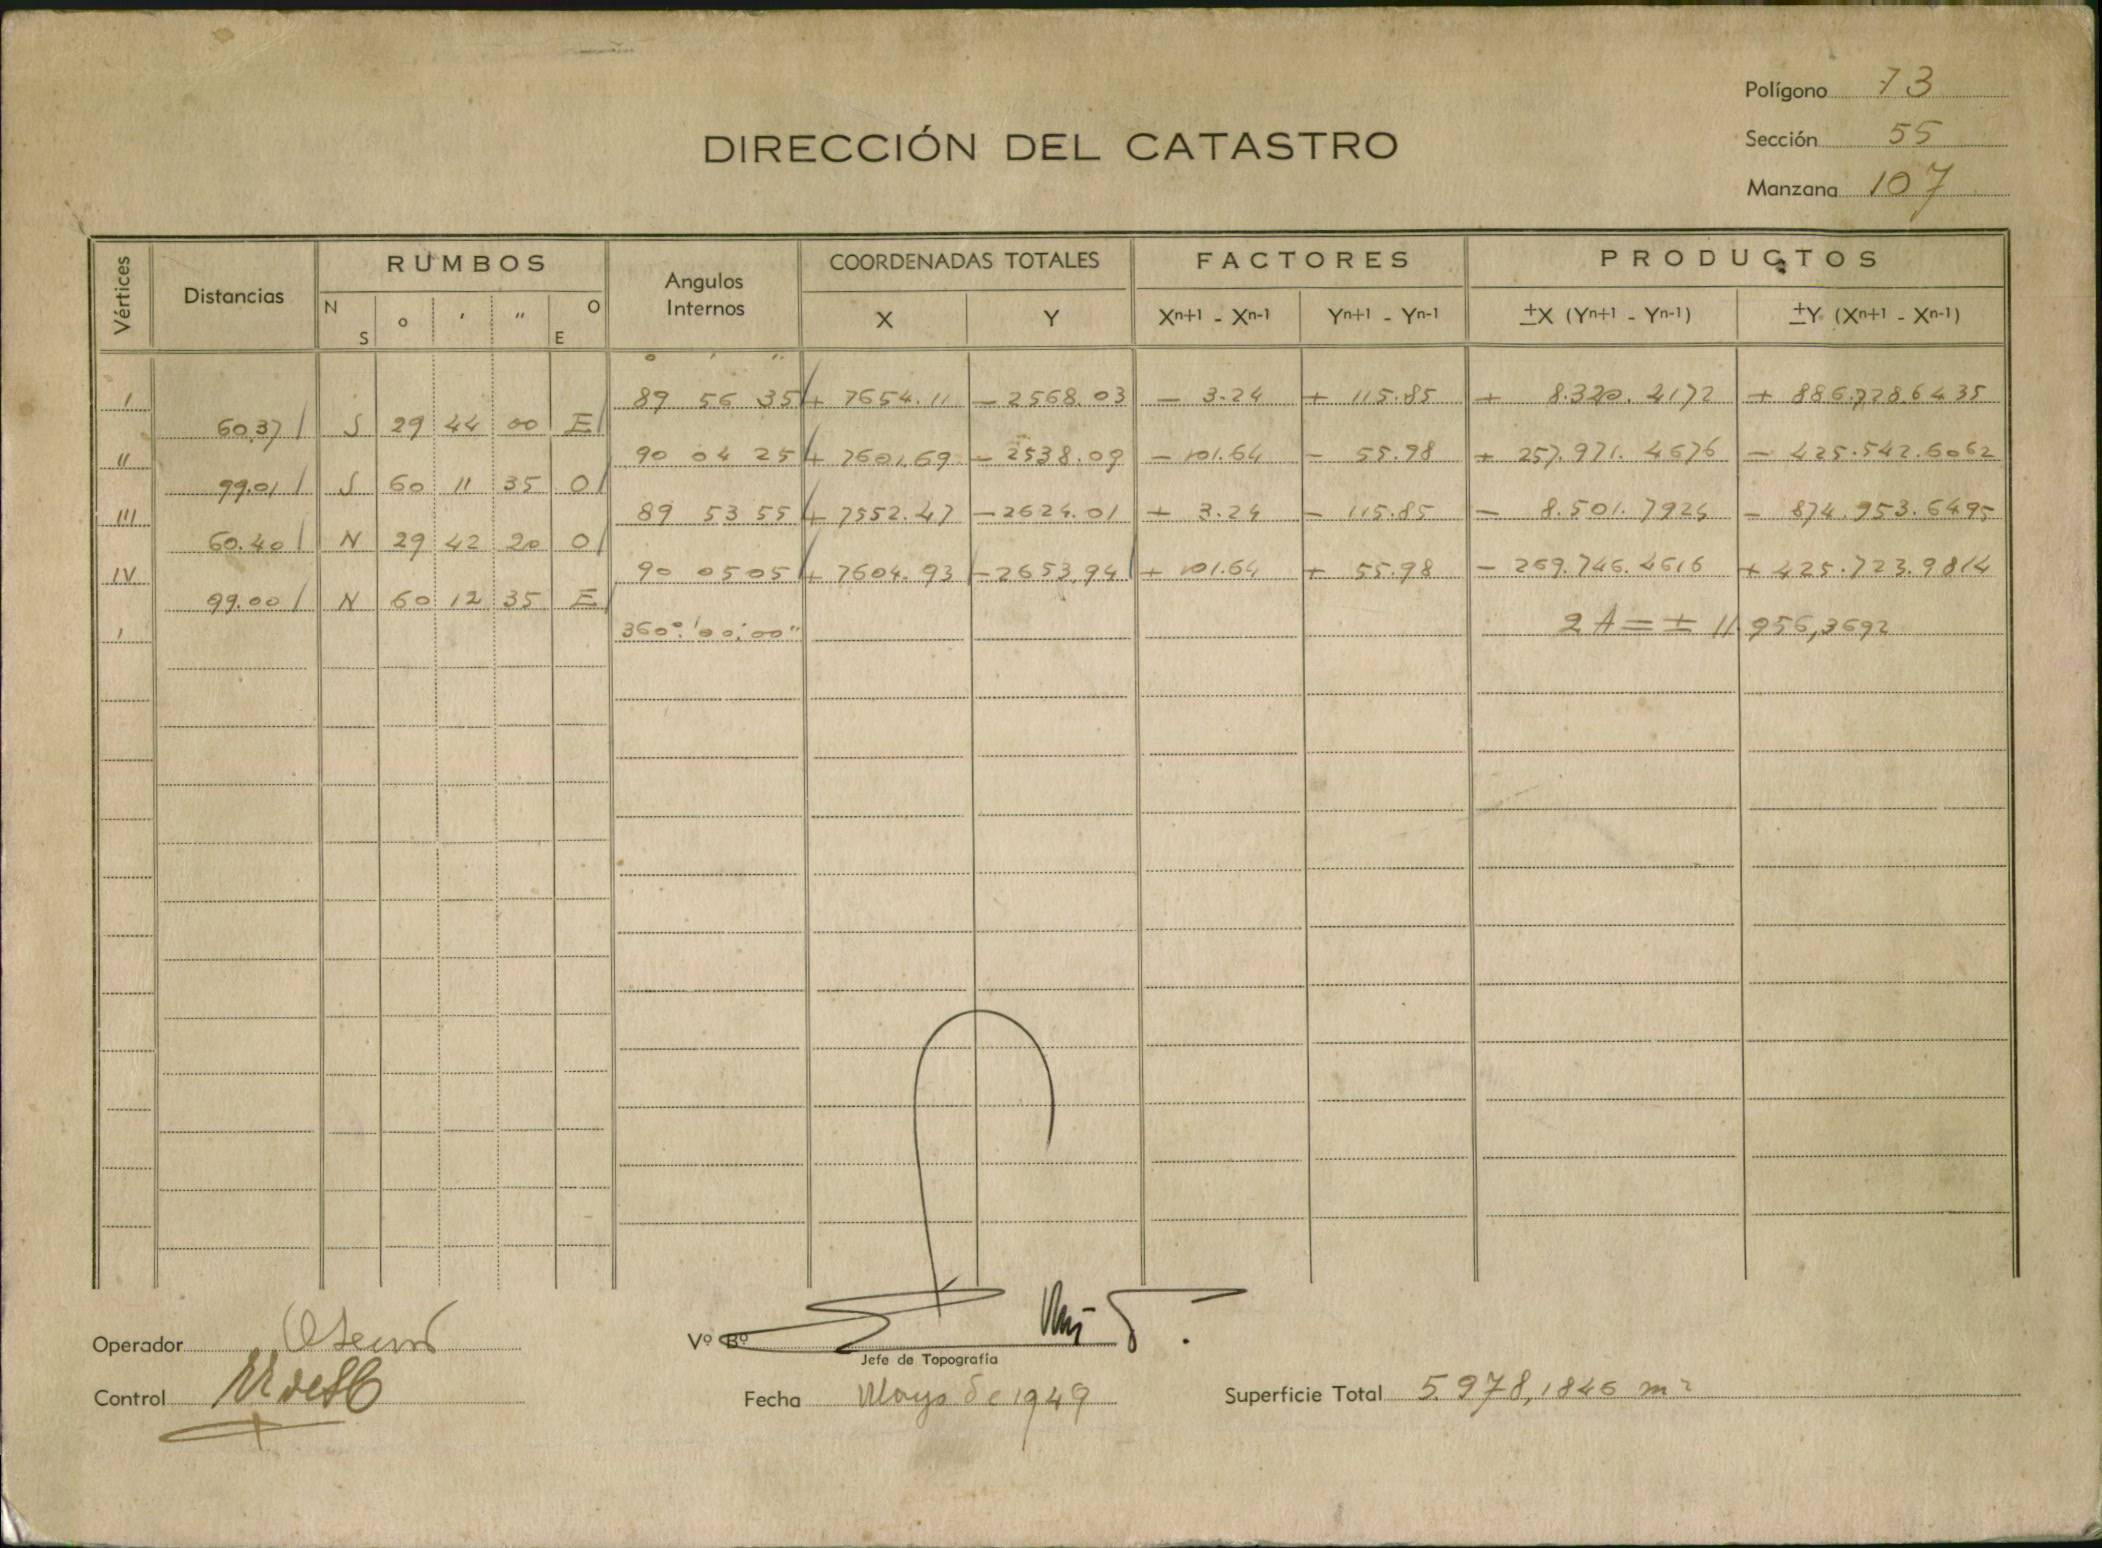 Polígono 73
DIRECCIÓN DEL CATASTRO
Sección 55
Manzana 107
Vértices Distancias RUMBOS Angulos Internos COORDENADAS TOTALES FACTORES PRODUCTOS
N S o ' " O E X Y Xn+1 - Xn-1 Yn+1 - Yn-1 ±X (Yn+1 - Yn-1) ±Y (Xn+1 - Xn-1)
o ' "
I 89 56 35 + 7654.11 - 2568.03 - 3.24 + 115.85 + 8.320.4172 + 886.728.6435
60.37 S 29 44 00 E
II 90 04 25 + 7601.69 - 2538.09 - 101.64 - 55.98 + 257.971.4676 - 425.542.6062
99.01 S 60 11 35 O
III 89 53 55 + 7552.47 - 2624.01 + 3.24 - 115.85 - 8.501.7924 - 874.953.6495
60.40 N 29 42 20 O
IV 90 05 05 + 7604.93 - 2653.94 + 101.64 + 55.98 - 269.746.4616 + 425.723.9814
99.00 N 60 12 35 E
I 360° 00' 00" 2A = ± 11.956,3692
Operador
Vº Bº
Jefe de Topografía
Control
Fecha Mayo de 1949
Superficie Total 5.978,1846 m²